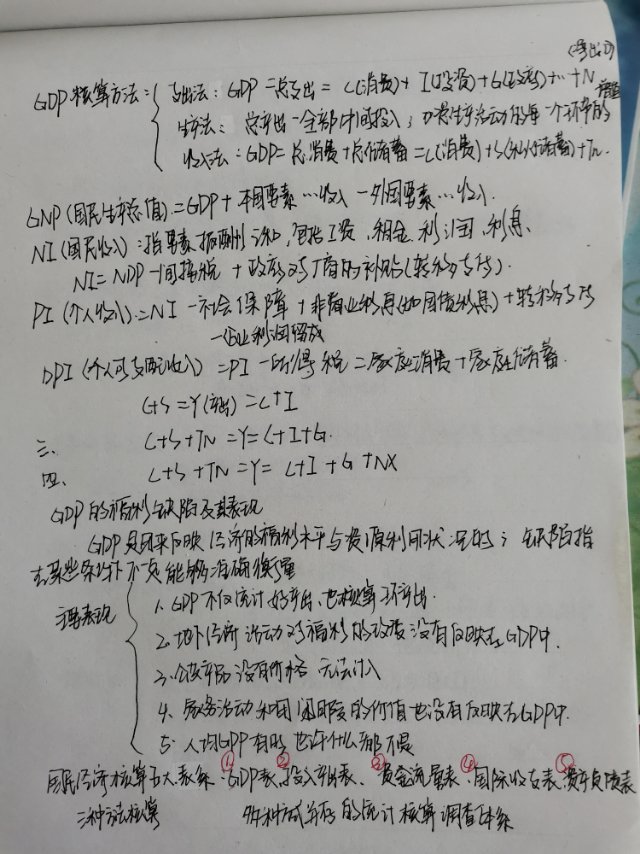 (净出口)
GDP核算方法：支出法：GDP=总支出=C(消费)+I(投资)+G(政府)+…+N
生产法：总产出－全部中间投入；即是生产活动的每一个环节的
收入法：GDP=总消费+总储蓄=C(消费)+S(私人储蓄)+Tn.
GNP(国民生产总值)=GDP+本国要素…收入－外国要素…收入.
NI(国民收入)：指要素报酬之和，包括工资、租金、利润、利息、
NI=NDP－间接税+政府对厂商的补贴(转移支付).
PI(个人收入)=NI－社会保障+非商业利息(如国债利息)+转移支付
－企业利润留成
DPI(个人可支配收入)=PI－所得税=家庭消费+家庭储蓄.
C+S=Y(产出)=C+I
三、 C+S+TN=Y=C+I+G.
四、 C+S+TN=Y=C+I+G+NX
GDP的福利缺陷及其表现
GDP是用来反映经济的福利水平与资源利用状况的；缺陷指
在某些条件下不是能够准确衡量
主要表现
1. GDP不仅统计好产出、也核算坏产出.
2. 地下经济活动对福利的改变没有反映在GDP中.
3. 公共产品没有价格 无法计入
4. 家务活动和闲暇的价值也没有反映在GDP中.
5. 人均GDP有时也许什么都不是
国民经济核算五大表系：①GDP表、②投入产出表、③资金流量表、④国际收支表、⑤资产负债表
三种方法核算 多种 并存的统计核算调查体系